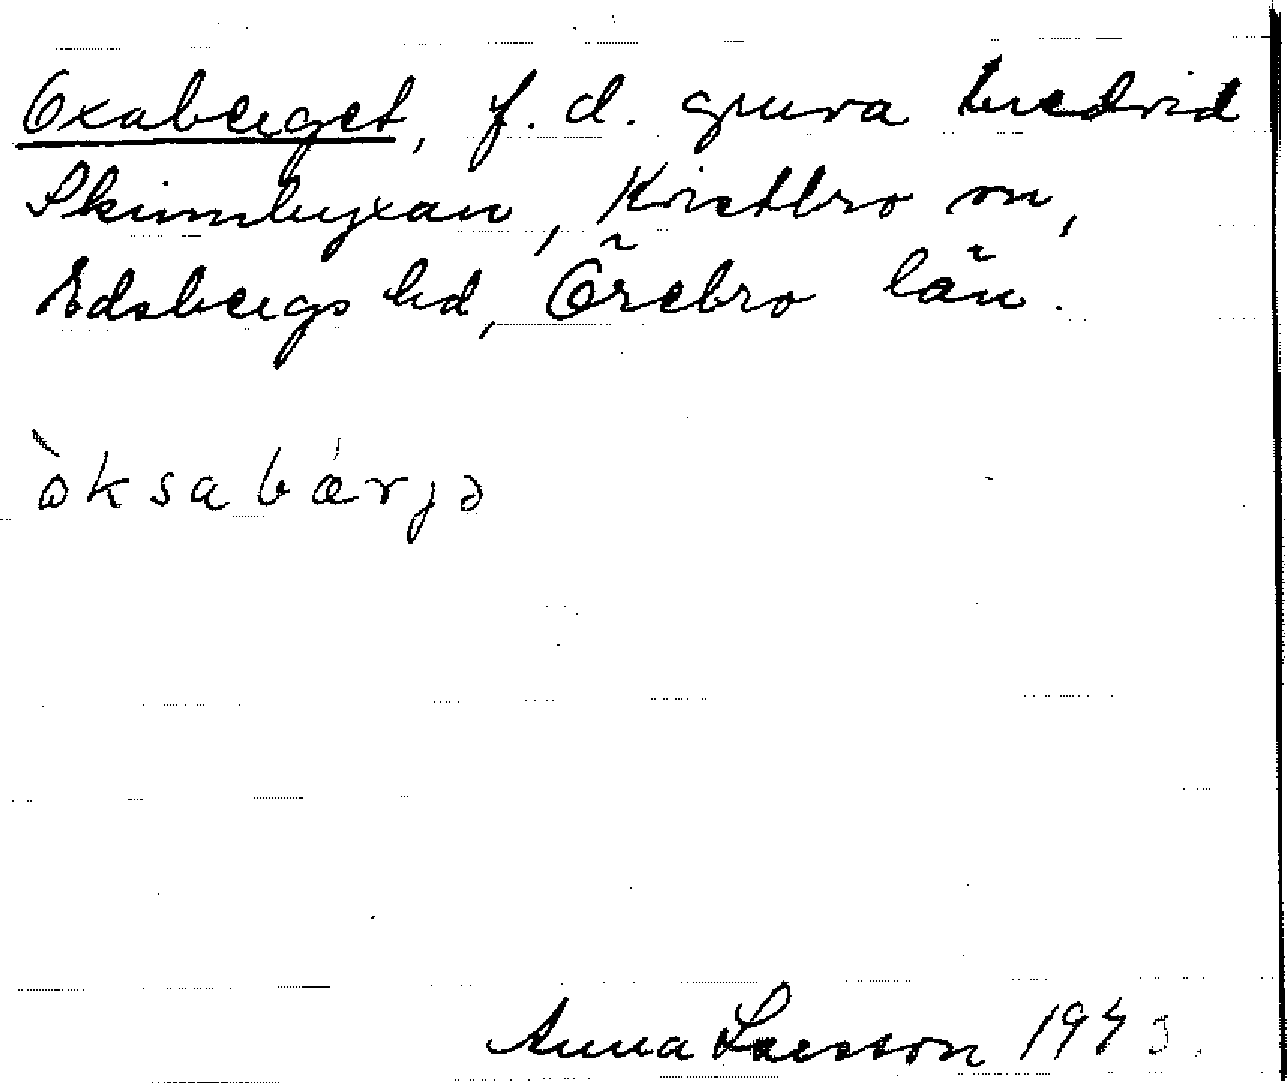 Oxaberget, f. d. gruva bredvid
Skinnbyxan, Kvistbro sn,
Edsbergs hd, Örebro län.
òksabárjə
Anna Larsson 1943.